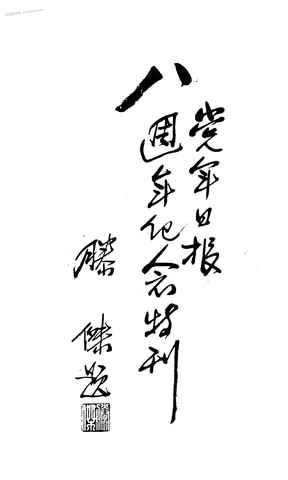 党军日报
八週年纪念特刊
滕傑题